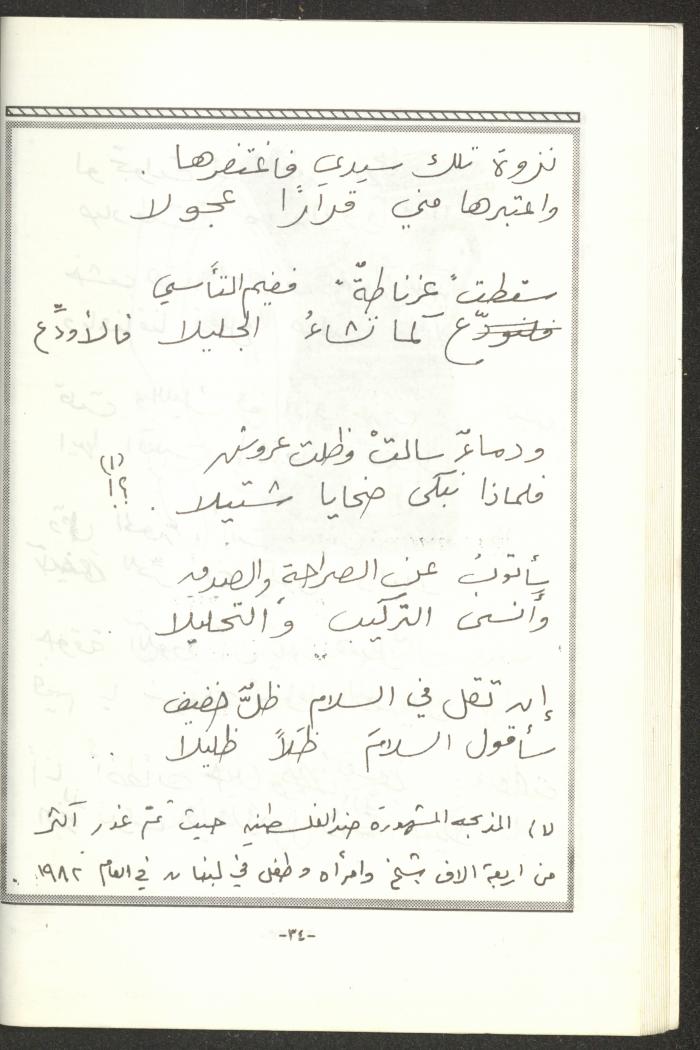 نزوة تلك سيدي فاغتفرها .
واعتبرها مني قرارًا عجولا
سقطت "غرناطةٌ" ففيم التأسي
فلنودّع كما تشاءُ الجليلا فالأودِّع
ودماءٌ سالتْ وظلت عروش
فلماذا نبكي ضحايا شتيلا .؟! (١)
سأتوبُ عن الصراحةِ والصدقِ
وأنسى التركيب والتحليلا .
إن تقل في السلام ظلٌّ خفيف
سأقول السلامَ ظلاً ظليلا .
(١) المذبحه المشهورة ضد الفلسطنين حيث تمّ غدر أكثر
من اربعة الاف شيخ وامرأه وطفل في لبنان في العام ١٩٨٢ .
-٣٤-